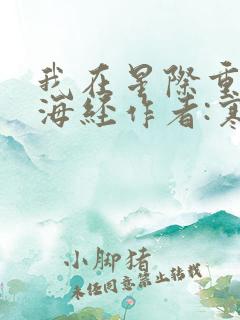 我在星际重
海经作者:寒
小脚猪
未经同意禁止转载